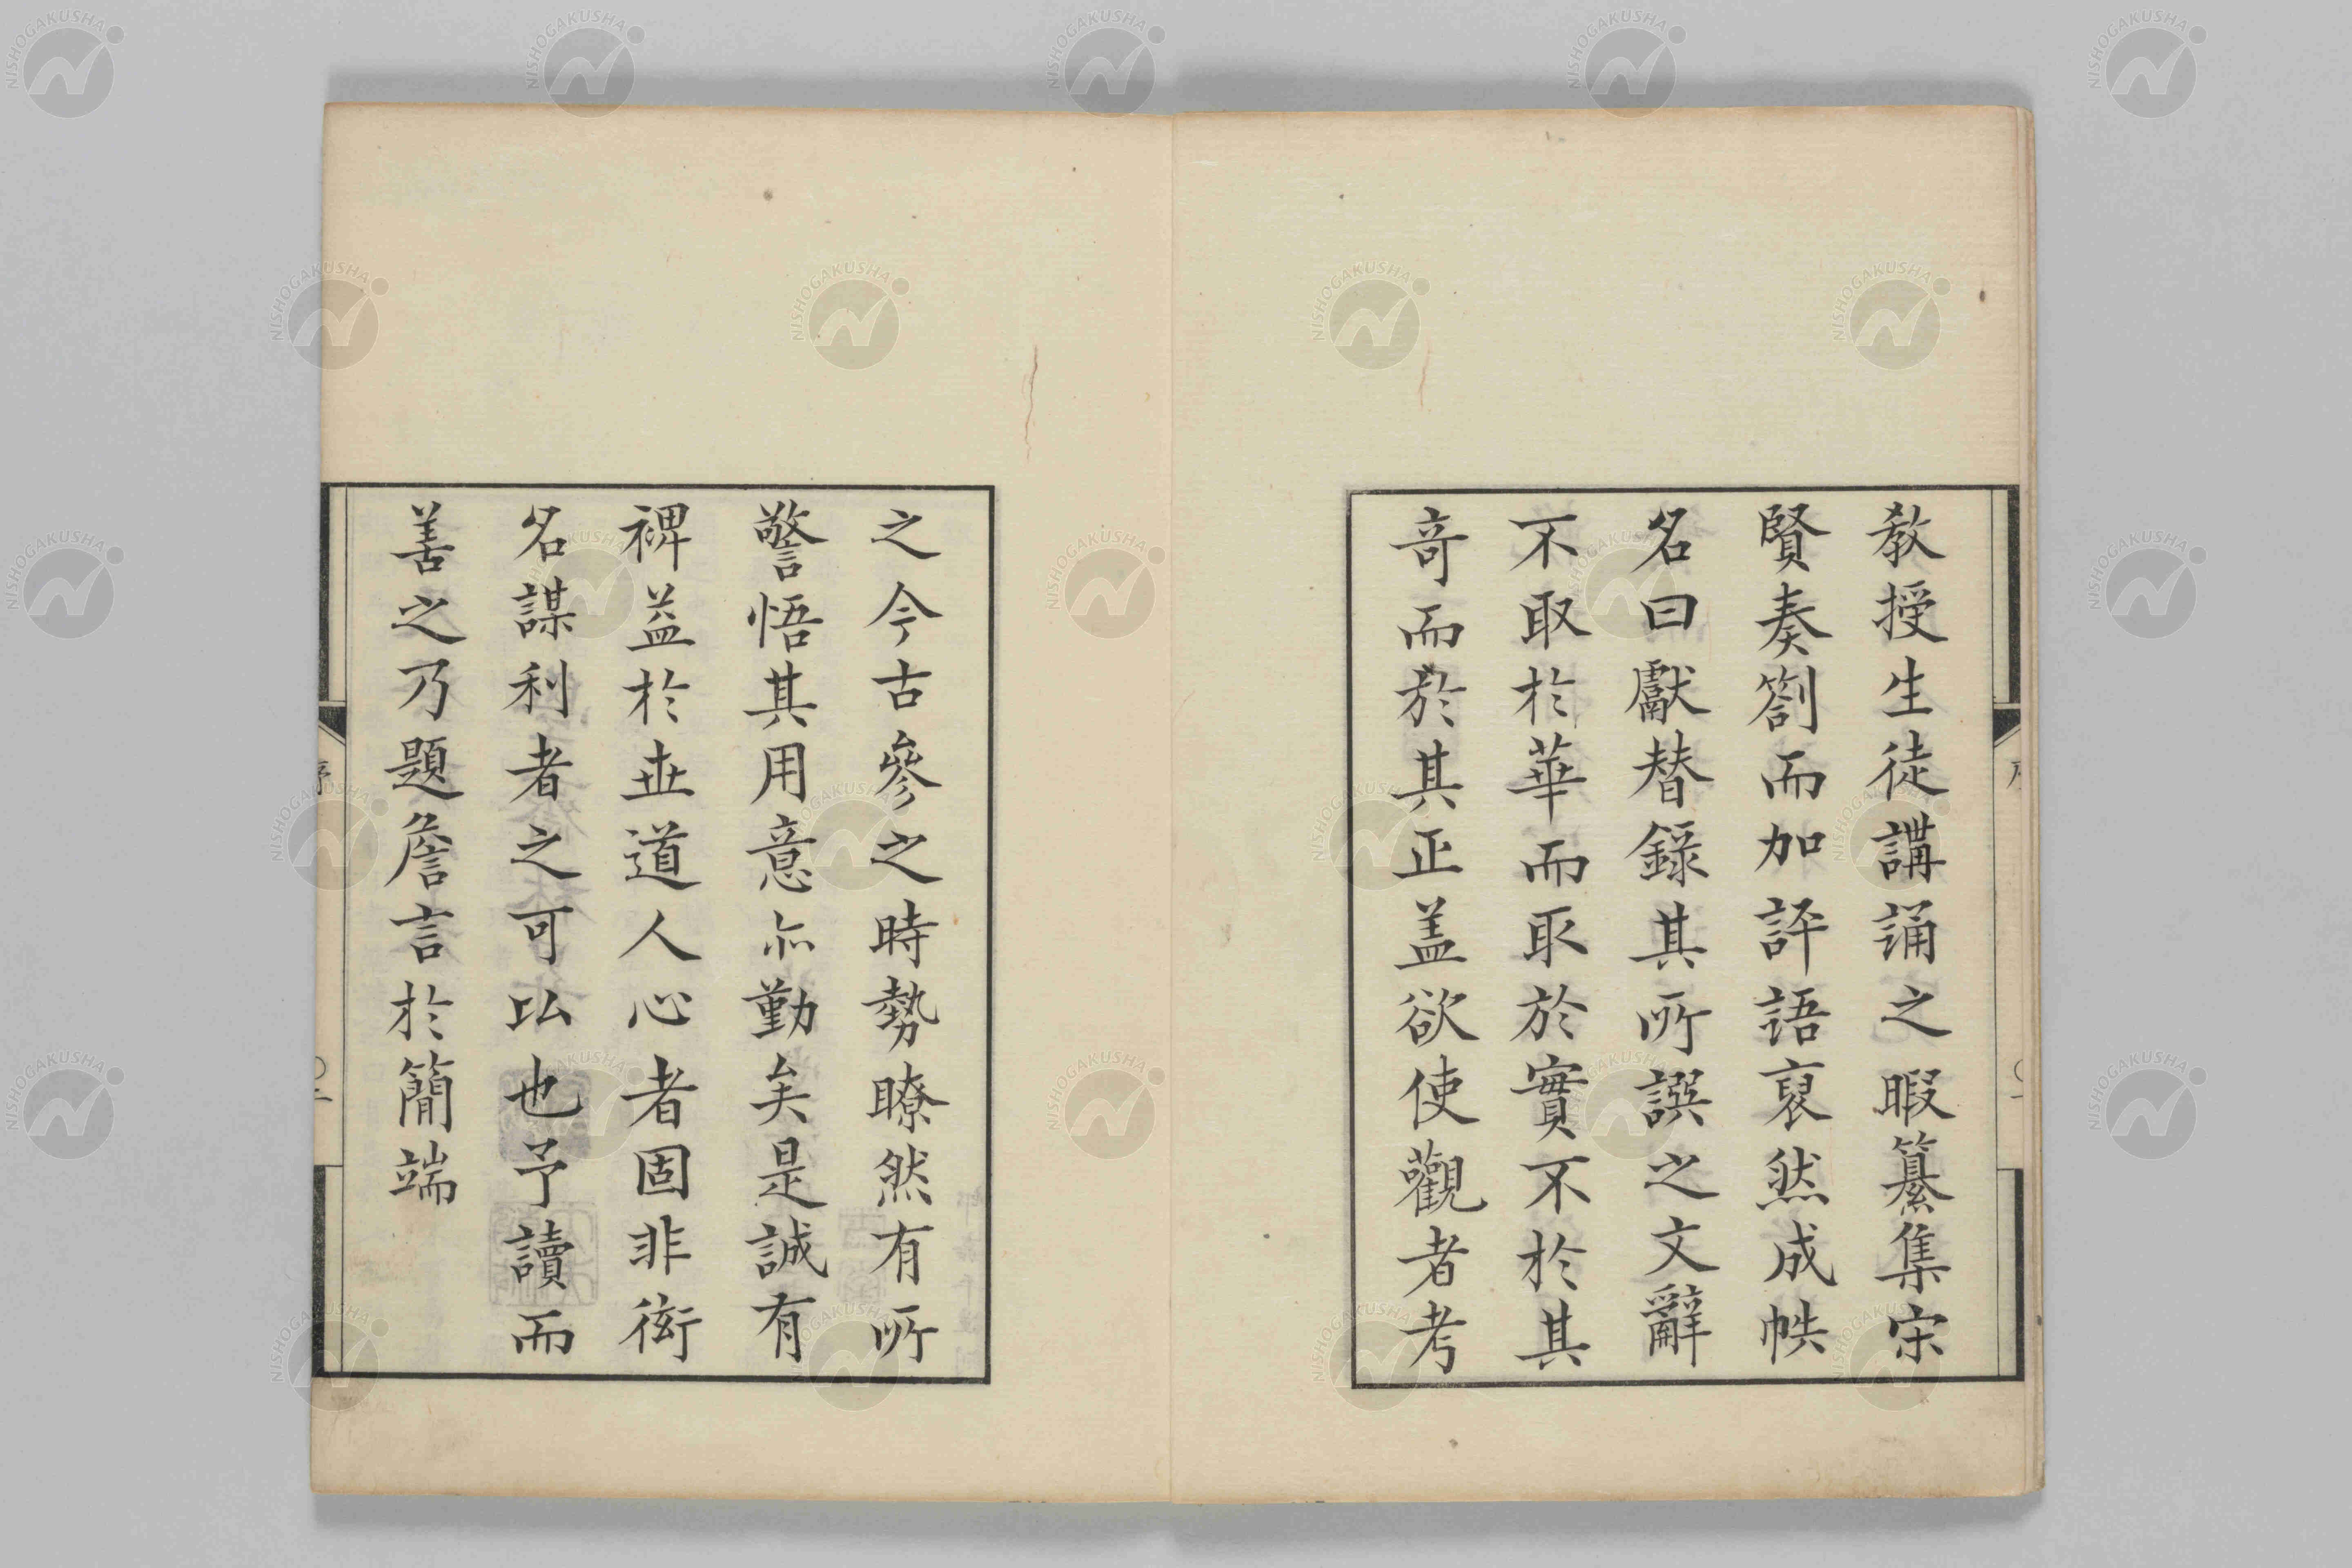 教授生徒講誦之暇纂集宋
賢奏劄而加評語裒然成帙
名曰獻替錄其所譔之文辭
不取於華而取於實不於其
奇而於其正盖欲使觀者考
之今古參之時勢瞭然有所
警悟其用意亦勤矣是誠有
裨益於世道人心者固非衒
名謀利者之可比也予讀而
善之乃題詹言於簡端
序
〇二
NISHOGAKUSHA